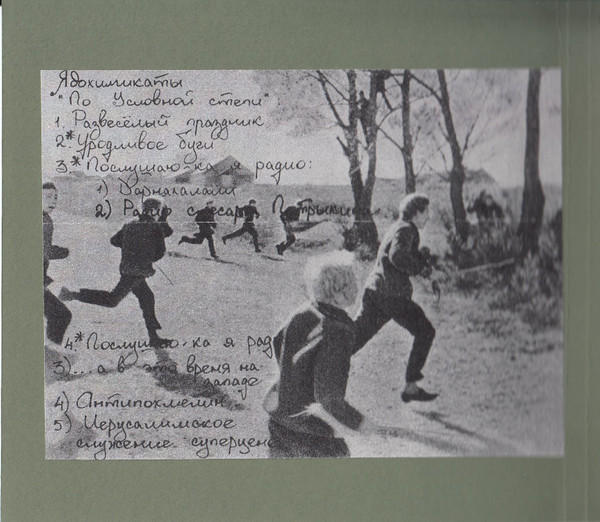 Ядохимикаты
"По Условной степи":
1. Развесёлый праздник
2.* Уродливое буги
3.* Послушаю-ка я радио:
1) Дарнакалами
2) Радио слесаря Патрыкина
4.* Послушаю-ка я рад
3)... а в это время на
западе
4) Антипохмелин
5) Иерусалимское
служение суперцен